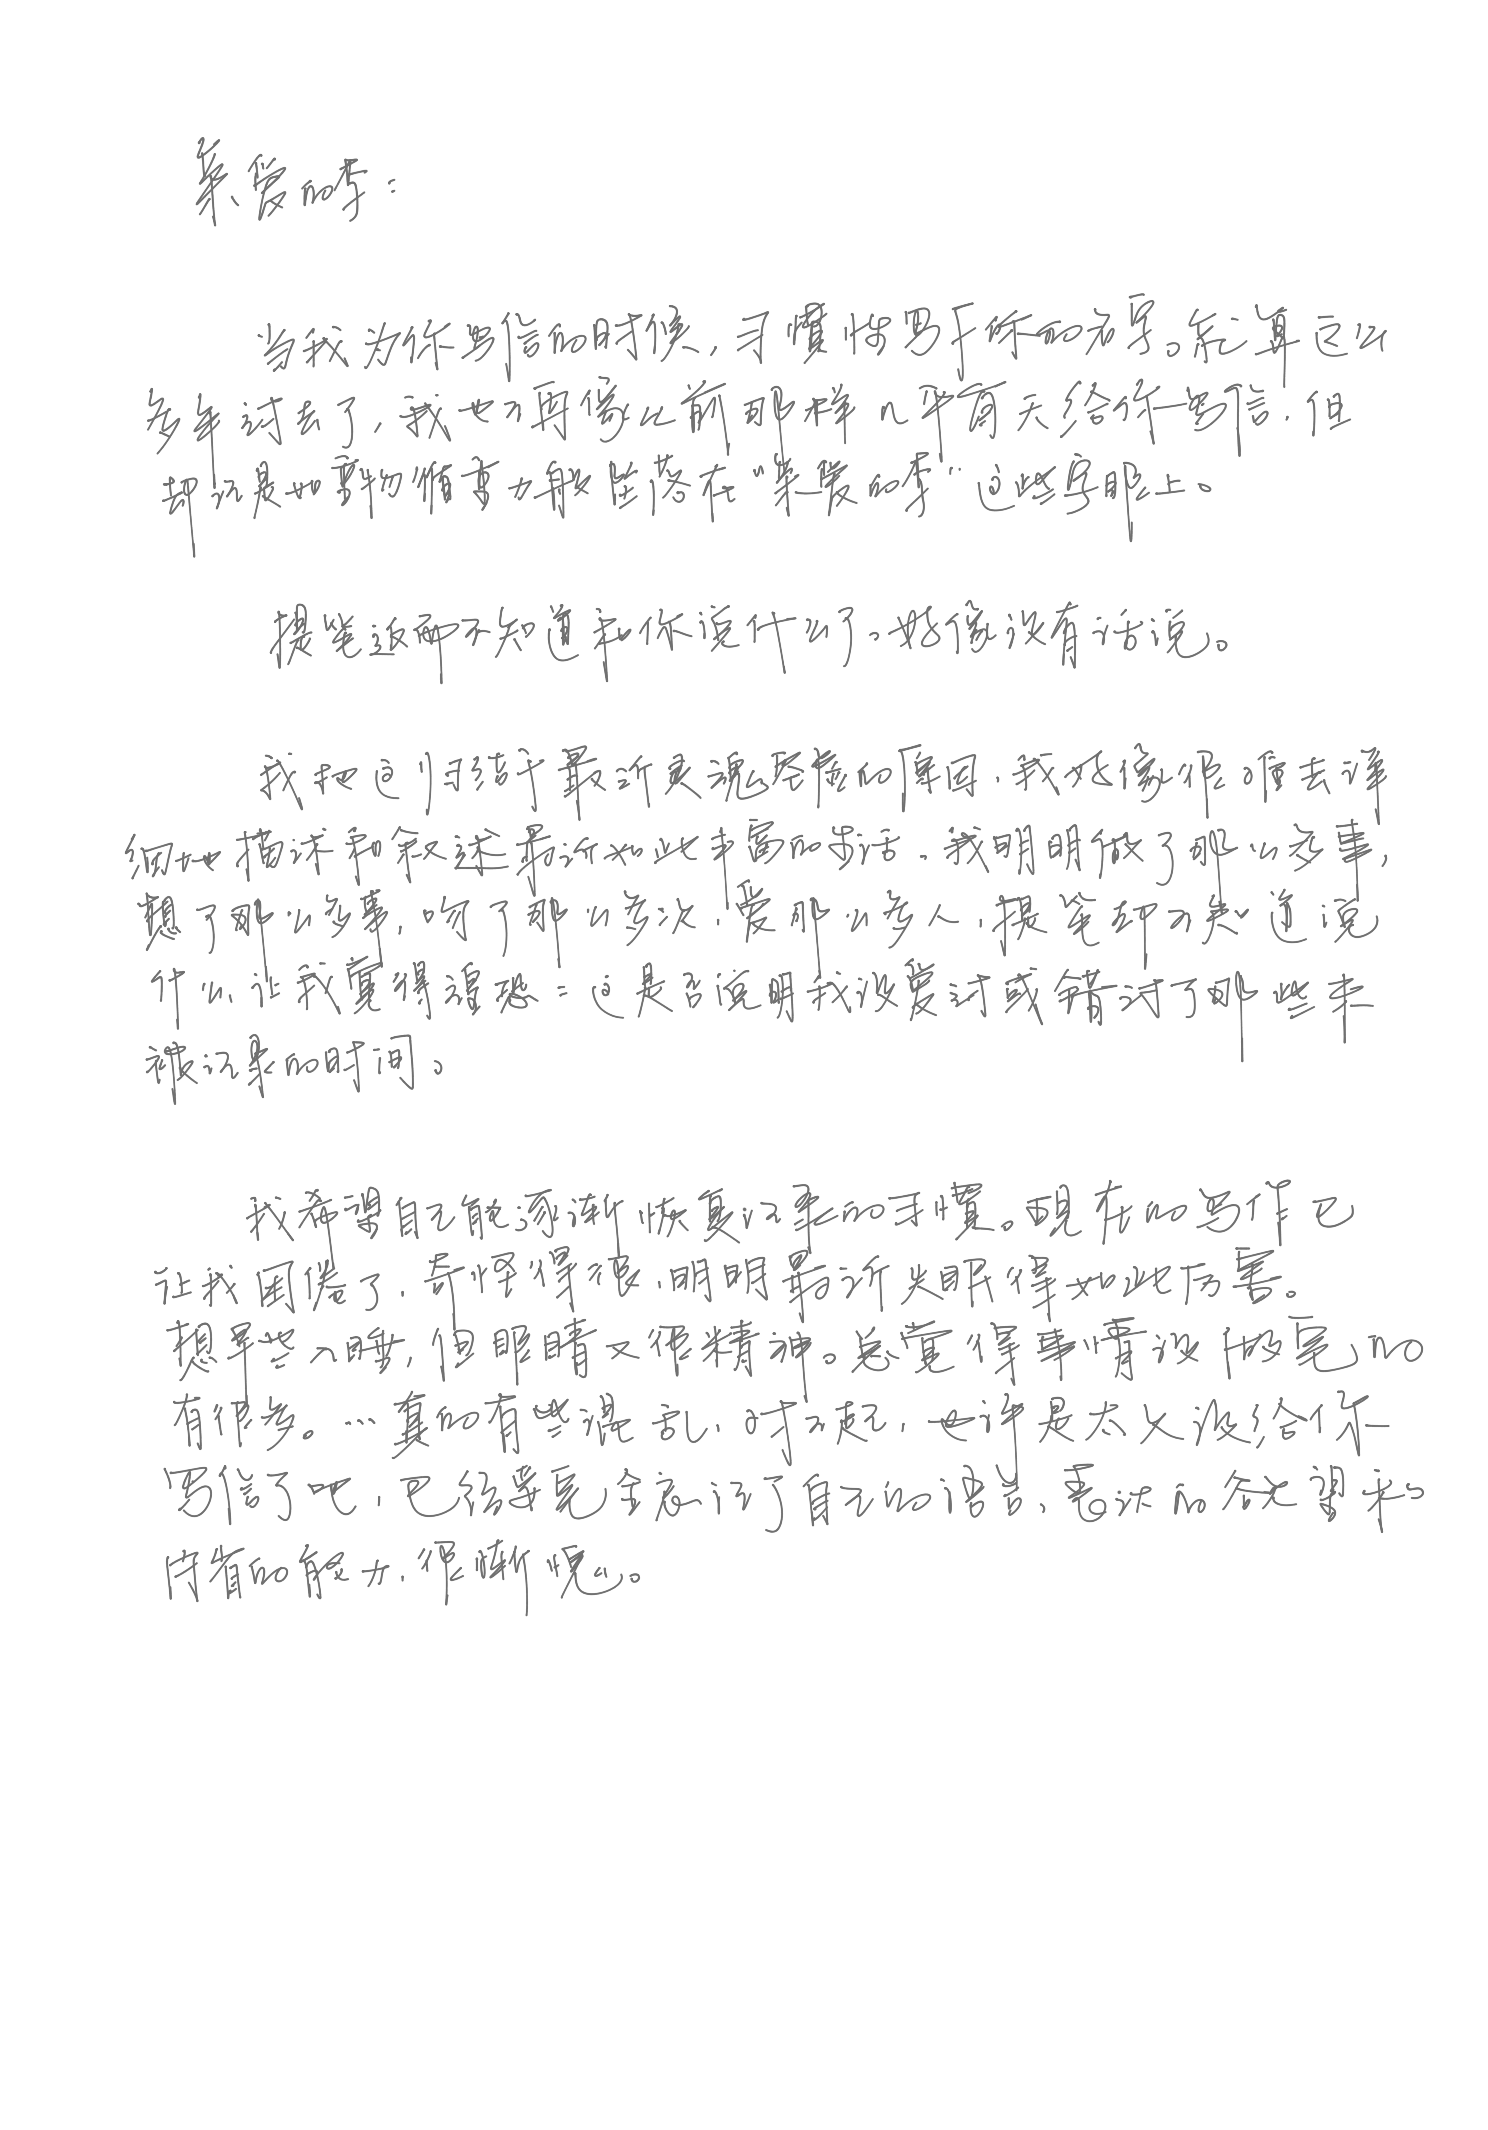 亲爱的李：
当我为你写信的时候，习惯性写下你的名字。就算这么
多年过去了，我也不再像以前那样几乎每天给你写信，但
却还是如重物循重力般坠落在“亲爱的李”这些字眼上。
提笔返而不知道和你说什么了。好像没有话说。
我把这归结于最近灵魂空虚的原因，我好像很难去详
细地描述和叙述最近如此丰富的生活。我明明做了那么多事，
想了那么多事，吻了那么多次，爱那么多人，提笔却不知道说
什么，让我觉得惶恐：这是否说明我没爱过或错过了那些未
被记录的时间。
我希望自己能逐渐恢复记录的习惯。现在的写作已
让我困倦了，奇怪得很，明明最近失眠得如此厉害。
想早些入睡，但眼睛又很精神。总觉得事情没做完的
有很多。…真的有些混乱，对不起，也许是太久没给你
写信了吧，已经要完全忘记了自己的语言，表达的欲望和
内省的能力，很惭愧。